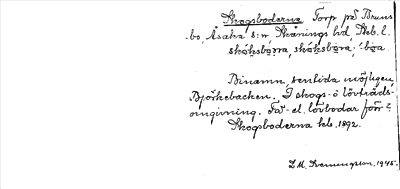 Skogsboderna Torp på Bruns-
bo, Åsaka s:n, Skånings hd, Skb. l.
skóksbòrra, skóksböra; -böa.
Binamn, senlida möjligen,
Björkebacken. I skogs- o lövträds-
omgivning. Få- el. lövbodar förr?
Skogsboderna kb. 1892.
L.M. Svenungsson, 1945.